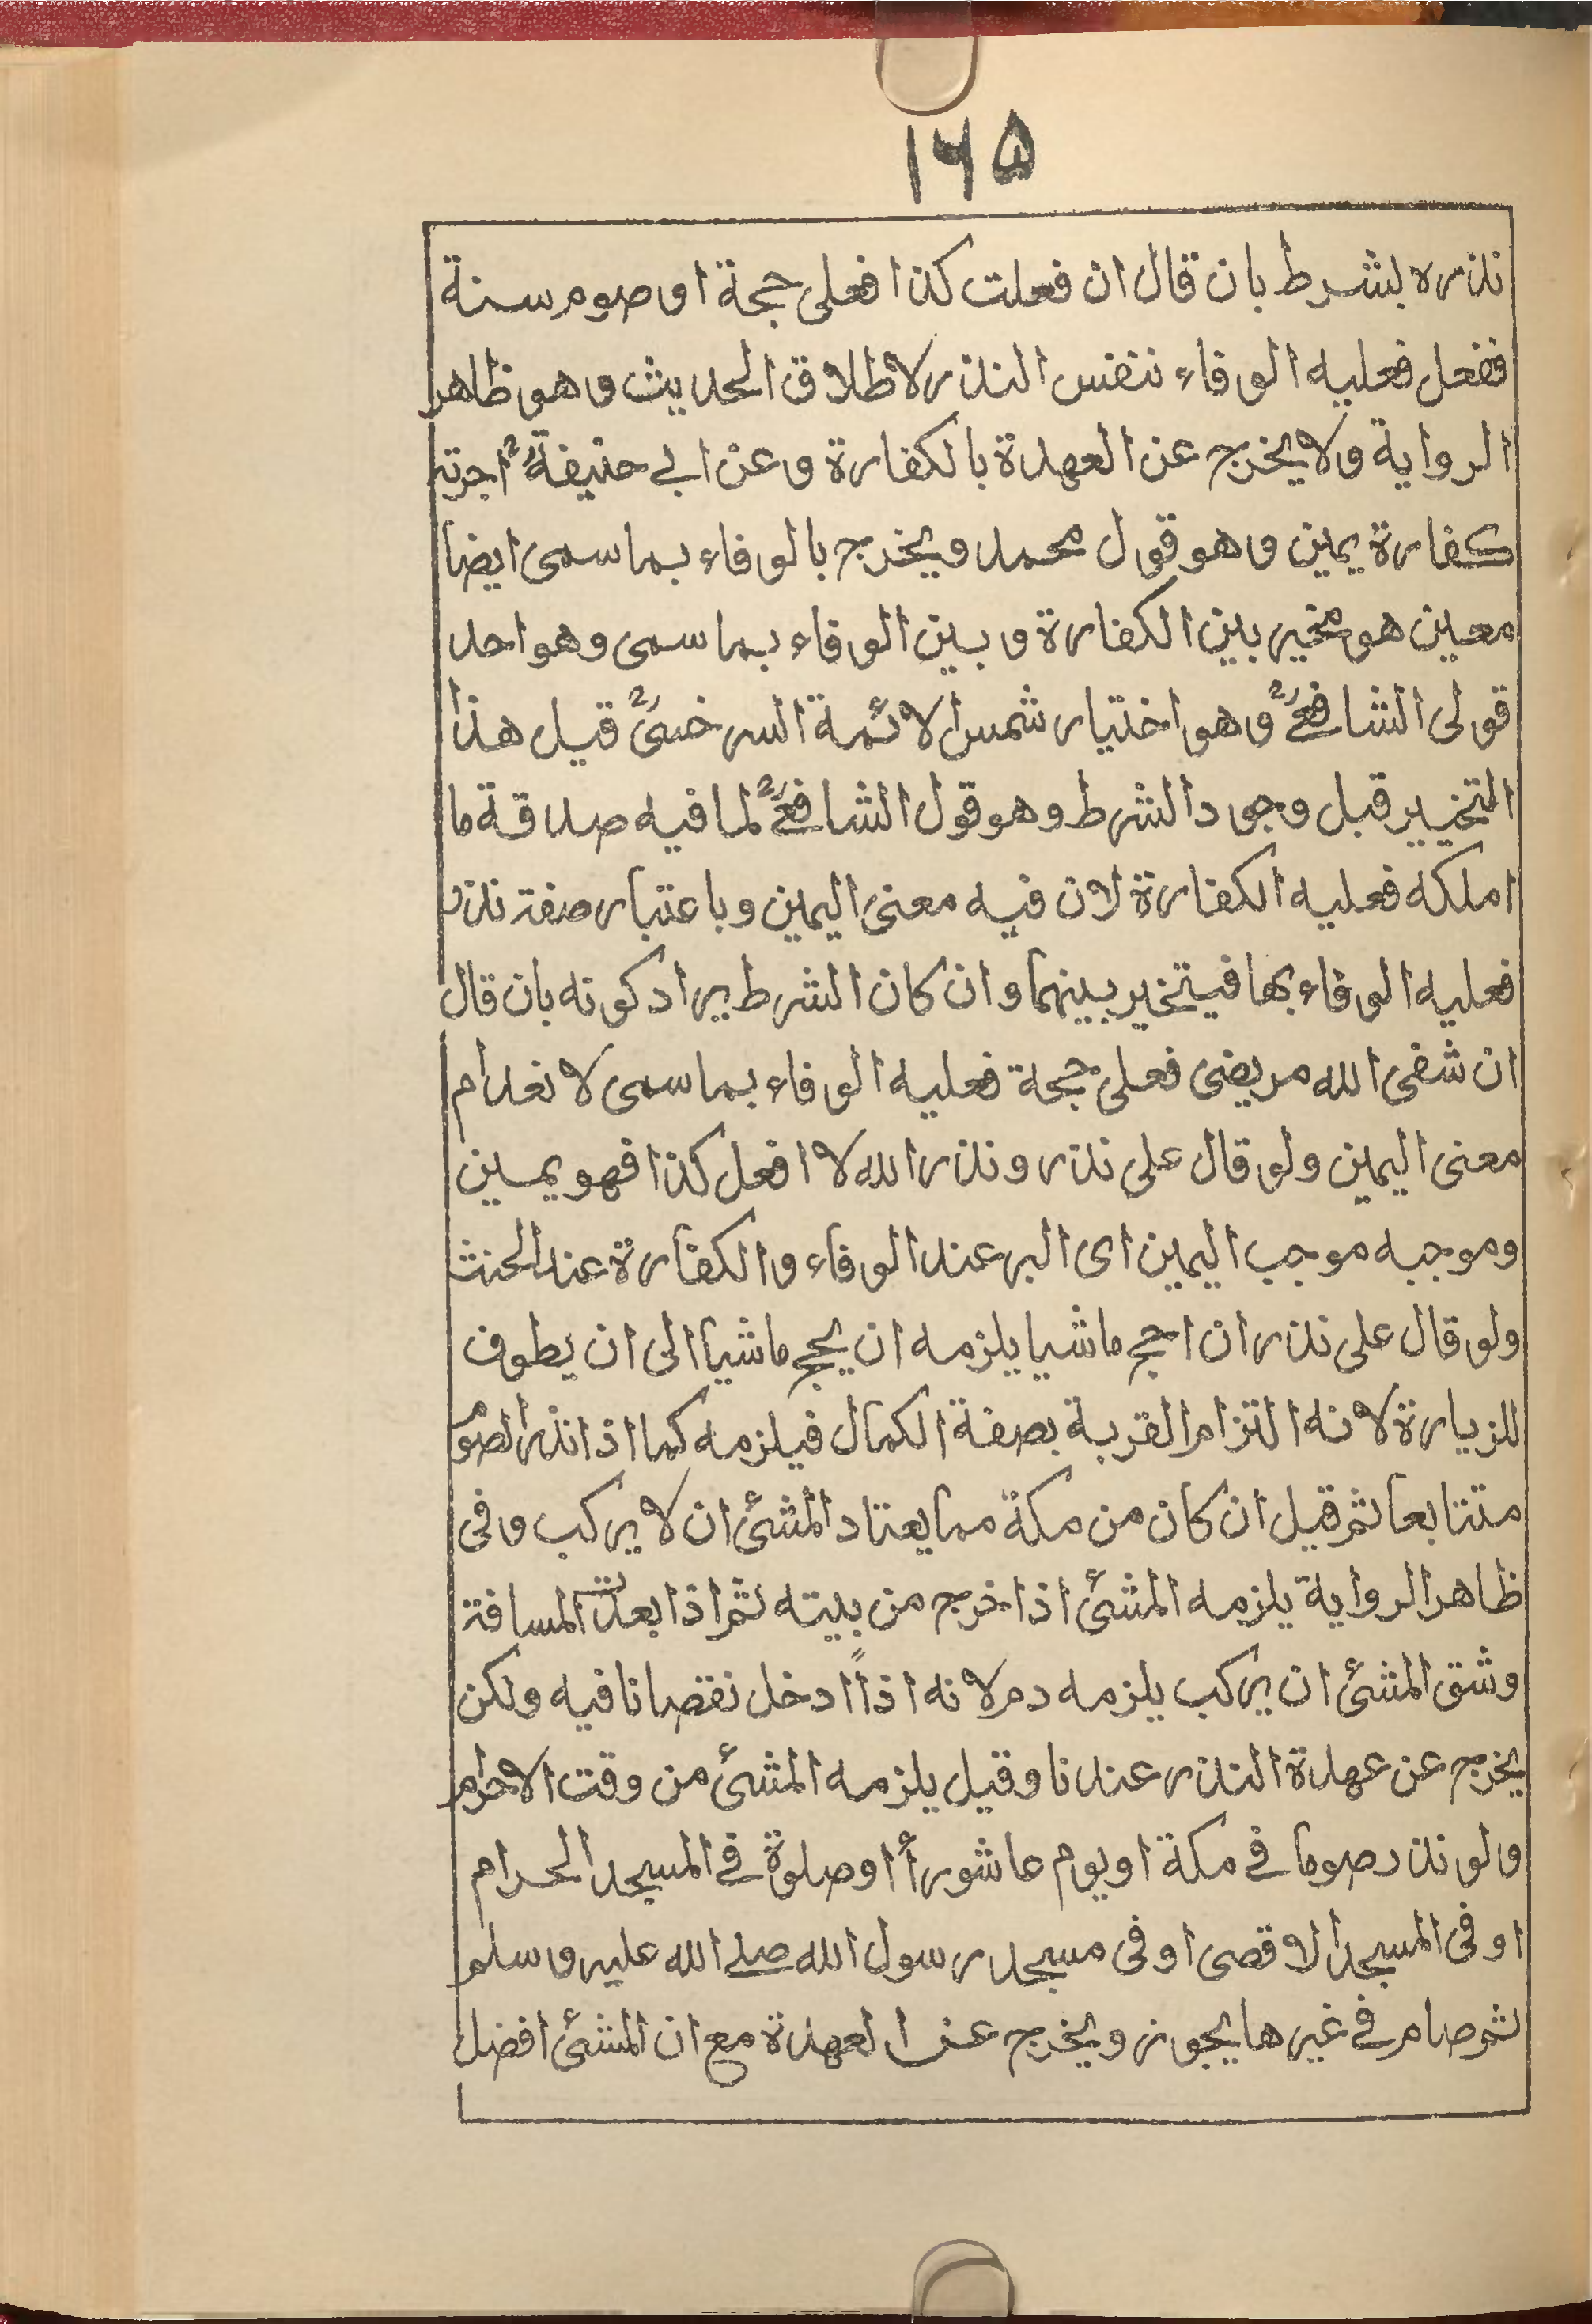 ۱۶۵
نذره بشرط بان قال ان فعلت كذا فعلى حجة او صوم سنة
ففعل فعليه الوفاء بنفس النذر لاطلاق الحديث وهو ظاهر
الرواية ولا يخرج عن العهدة بالكفارة وعن ابي حنيفةؒ اجزته
كفارة يمين وهو قول محمد ويخرج بالوفاء بما سمى ايضا
معين هو مخير بين الكفارة وبين الوفاء بما سمى وهو احد
قولى الشافعيؒ وهو اختيار شمس الائمة السرخسىؒ قيل هذا
التخيير قبل وجود الشرط وهو قول الشافعيؒ لما فيه صداقة ما
املكه فعليه الكفارة لان فيه معنى اليمين وباعتبار صفته نذر
فعليه الوفاء بها فيتخير بينهما وان كان الشرط يراد كونه بان قال
ان شفى الله مريضى فعلى حجة فعليه الوفاء بما سمى لانعدام
معنى اليمين ولو قال على نذر ونذر الله لا افعل كذا فهو يمين
وموجبه موجب اليمين اى البر عند الوفاء والكفارة عند الحنث
ولو قال على نذر ان احج ماشيا يلزمه ان يحج ماشيا الى ان يطوف
للزيارة لانه التزام القربة بصفة الكمال فيلزمه كما اذا نذر الصوم
متتابعا ثم قيل ان كان من مكة مما يعتاد المشئ ان لا يركب وفى
ظاهر الرواية يلزمه المشئ اذا خرج من بيته ثم اذا بعدت المسافة
وشق المشئ ان يركب يلزمه دم لانه اذاً ادخل نقصانا فيه ولكن
يخرج عن عهدة النذر عندنا وقيل يلزمه المشئ من وقت الاحرام
ولو نذر صوما في مكة او يوم عاشورأ او صلوة في المسجد الحرام
او فى المسجد الاقصى او فى مسجد رسول الله صلے الله عليه وسلم
ثم صام في غيرها يجوز ويخرج عن العهدة مع ان المشئ افضل